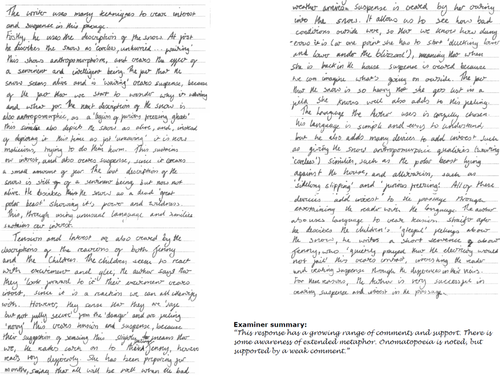 The writer uses many techniques to create interest
and suspense in this passage.
Firstly, he uses the description of the snow. At first
he describes the snow as 'careless, unhurried ... waiting'.
This shows anthropomorphism, and creates the effect of
a sentient and intelligent being. The fact that the
snow seems alive and is 'waiting' creates suspense, because
of the fact that we start to wonder why it's waiting
and what for. The next description of the snow is
also anthropomorphic, as a 'legion of furies pressing
this also depicts the snow as alive, and, instead
of it this time as just 'unhurried' it is more
malicious, trying to do them harm. This sustains
our interest, and also creates suspense, since it creates
a small amount of fear. The last description of the
snow is still of a sentient being, but now not
alone. He describes the snow as a 'dead great
polar beast' showing its power and wildness.
This, through using unusual language and similes
sustains our interest.
Tension and interest are also created by the
descriptions of the reactions of both Jenny
and the Children. The children seem to react
with excitement and glee. The author says they
'look forward to it'. Their excitement creates
interest, since it is a reaction we can all identify
with. However, they sense that they are 'safe
but not fully secure' from the 'danger' and are feeling
This creates tension and suspense, because
their suggestion of sensing this slightly means that
we, the reader catch on to this. Jenny, however
reacts very differently. She has been preparing for
months, saying that all will be well when the bad
weather suspense is created by her going
into the snow. It allows us to see how bad
conditions outside were, so that we know how dangerous
it is (at one point she has to start 'ducking lower
and lower under the blizzard'), meaning that when
she is back in the house suspense is created because
we can imagine what's going on outside. The fact
that the snow is so heavy that she gets lost in a
field she knows well also adds to this feeling.
The language the Author uses is carefully chosen.
his language is simple and easy to understand,
but he also adds many devices to add interest such
as giving the snow anthropomorphic qualities (waiting
'careless') similes, such as 'the polar beast lying
against the house', and alliteration, such as
'slithery slipping' and 'furies pressing'. All of these
devices add interest to the passage through
entertaining the reader with the language. The author
also uses language to create tension. Straight after
he describes the children's 'gleeful' feelings about
the snow, he writes a short sentence about
Jenny, who 'quietly prayed that the electricity would
not fail'. This creates contrast, interesting the reader
and creating suspense through the difference in their views.
For these reasons, the Author is very successful in
creating suspense and interest in the passage.
Examiner summary:
"This response has a growing range of comments and support. There is
some awareness of extended metaphor. Onomatopoeia is noted, but
supported by a weak comment."